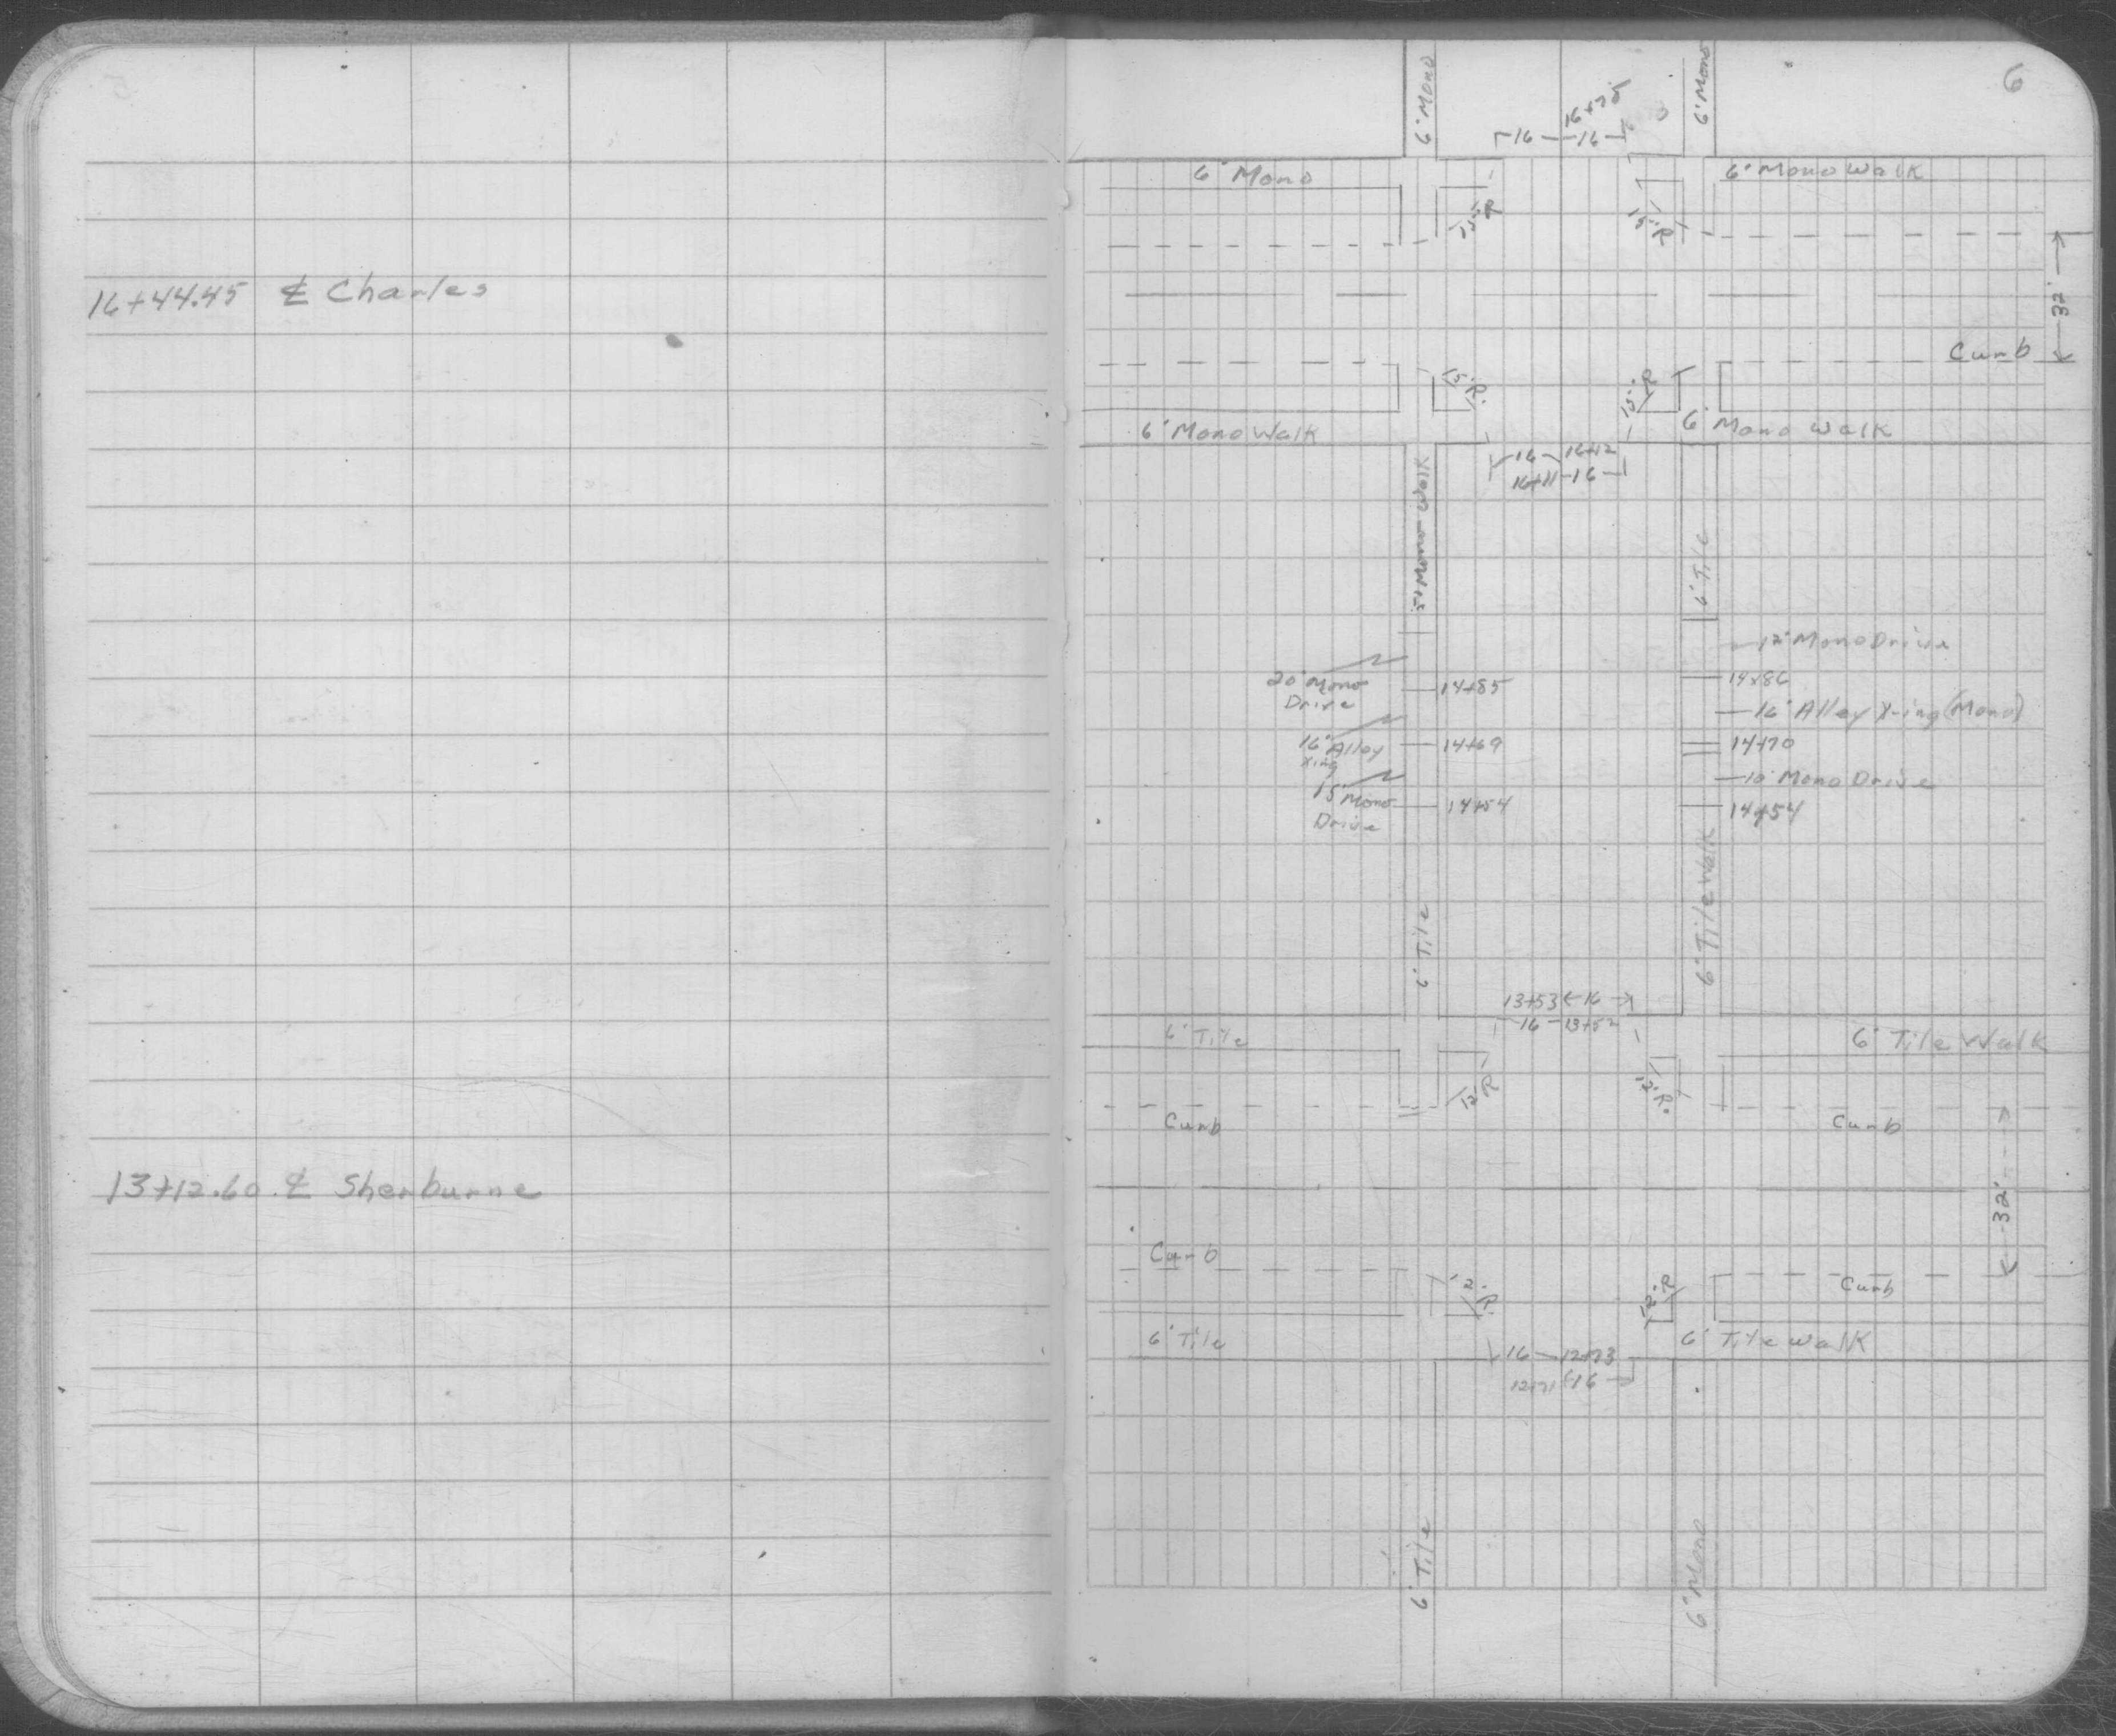 16+44.45 ℄ Charles
13+12.60 ℄ Sherburne
6
6' Mono
6' Mono
16+75
16 16
6' Mono
6' Mono Walk
15' R
15' R
32'
Curb
15' R.
15' R
6' Mono Walk
6' Mono Walk
16 16+12
16+11 16
Mono Walk
6' Tile
12' Mono Drive
20' Mono
Drive
14+85
14+86
16' Alley X-ing (Mono)
16' Alley
Xing
14+69
14+70
10' Mono Drive
15' Mono
Drive
14+54
14+54
6' Tile Walk
6' Tile
13+53 16
16 13+52
6' Tile
6' Tile Walk
12' R
12' R.
Curb
Curb
32'
Curb
Curb
12' R.
12' R
6' Tile
6' Tile walk
16 12+73
12+71 16
6' Tile
6' Mono